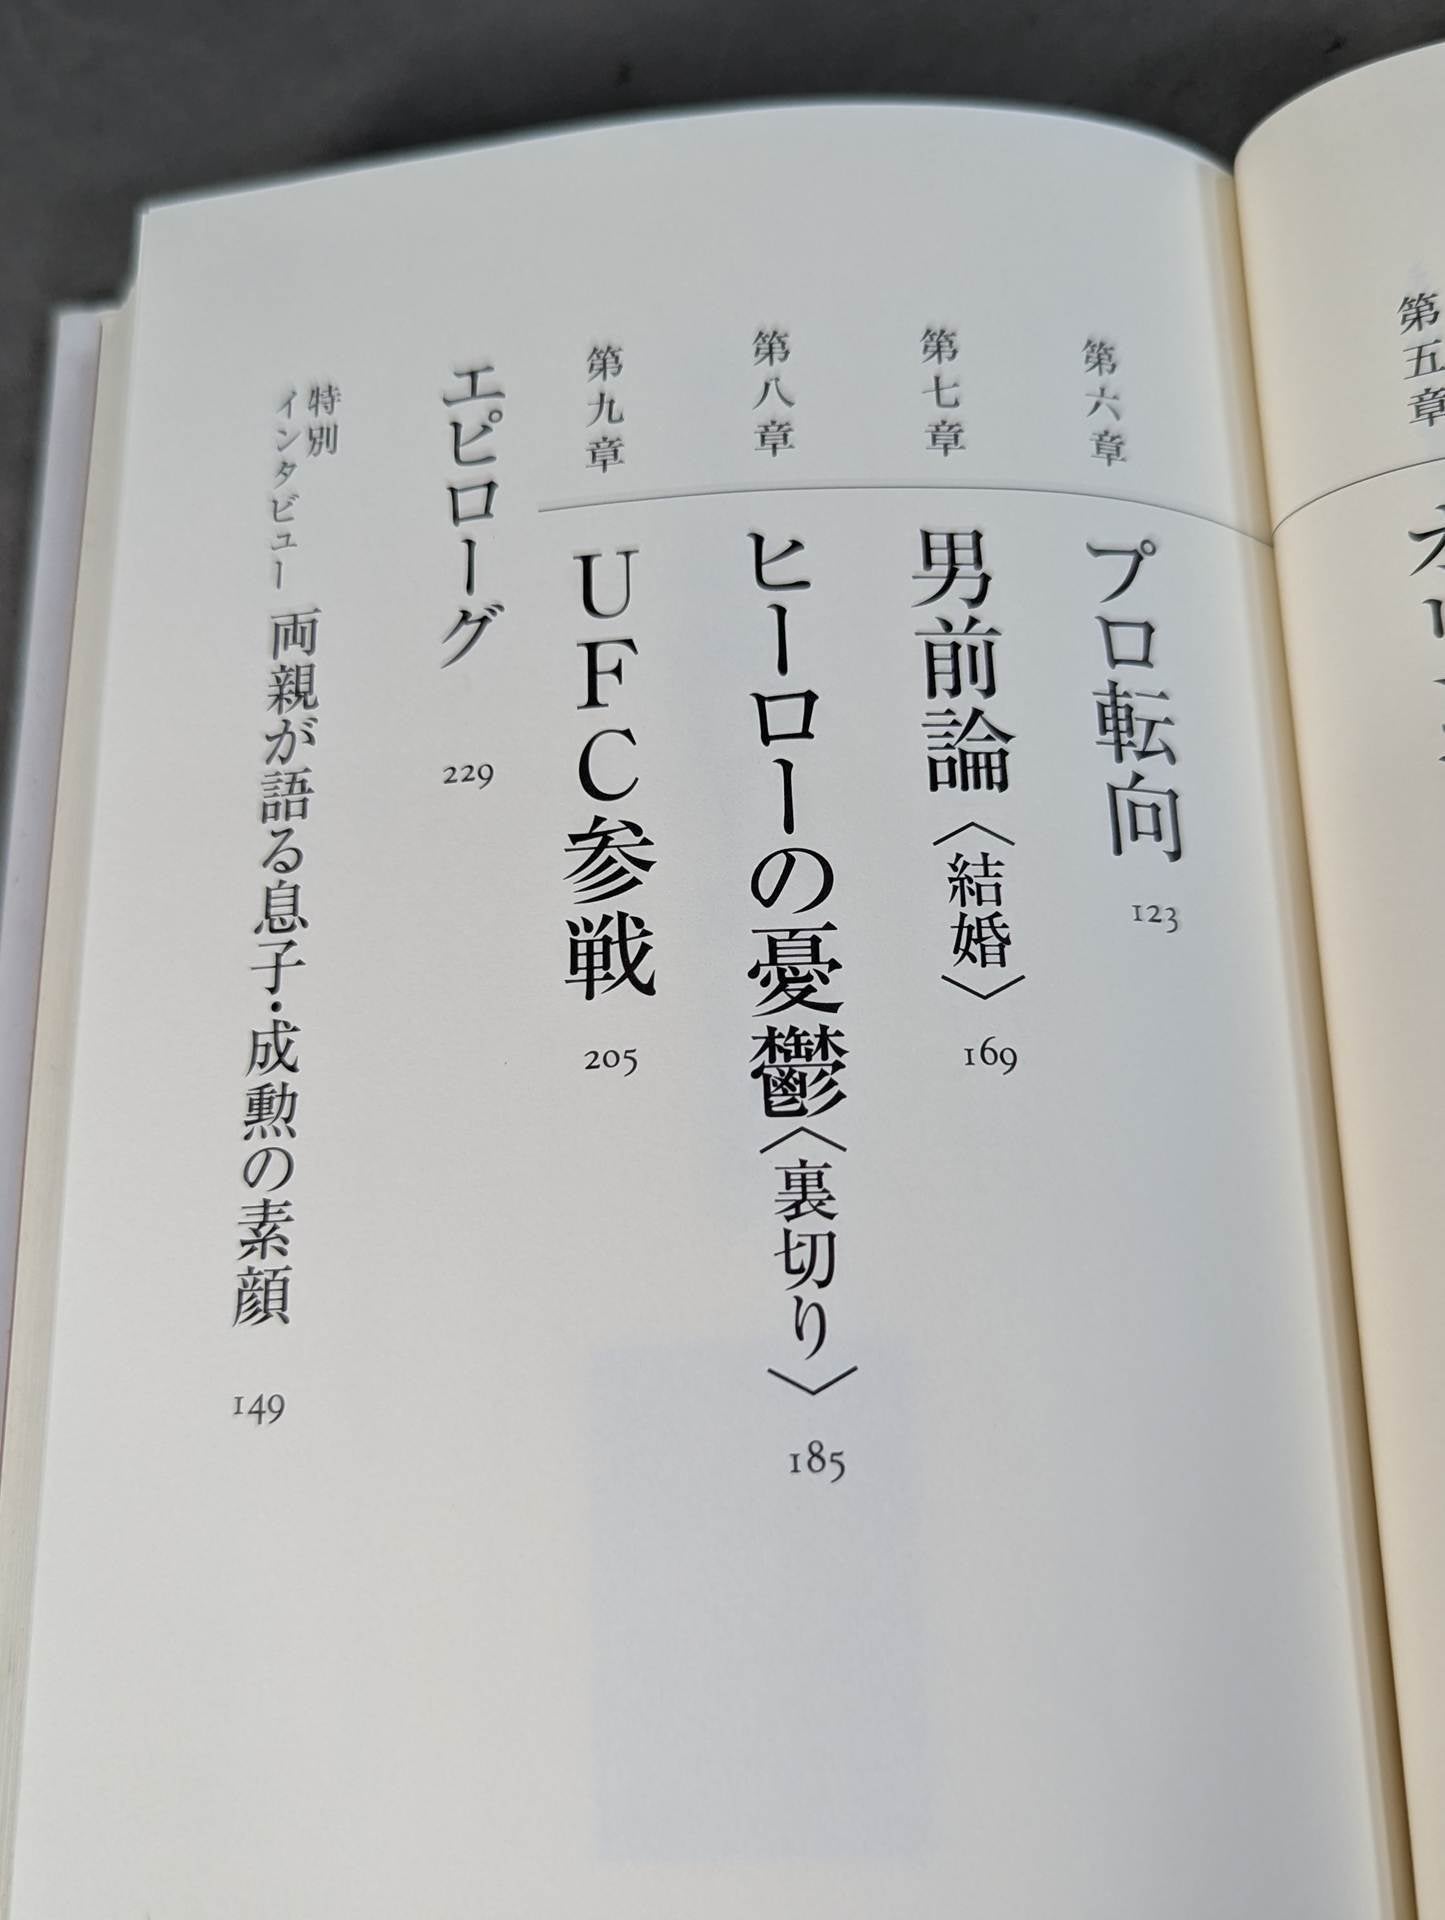 第五章
第六章 プロ転向 123
第七章 男前論〈結婚〉 169
第八章 ヒーローの憂鬱〈裏切り〉 185
第九章 UFC参戦 205
エピローグ 229
特別インタビュー 両親が語る息子・成勲の素顔 149